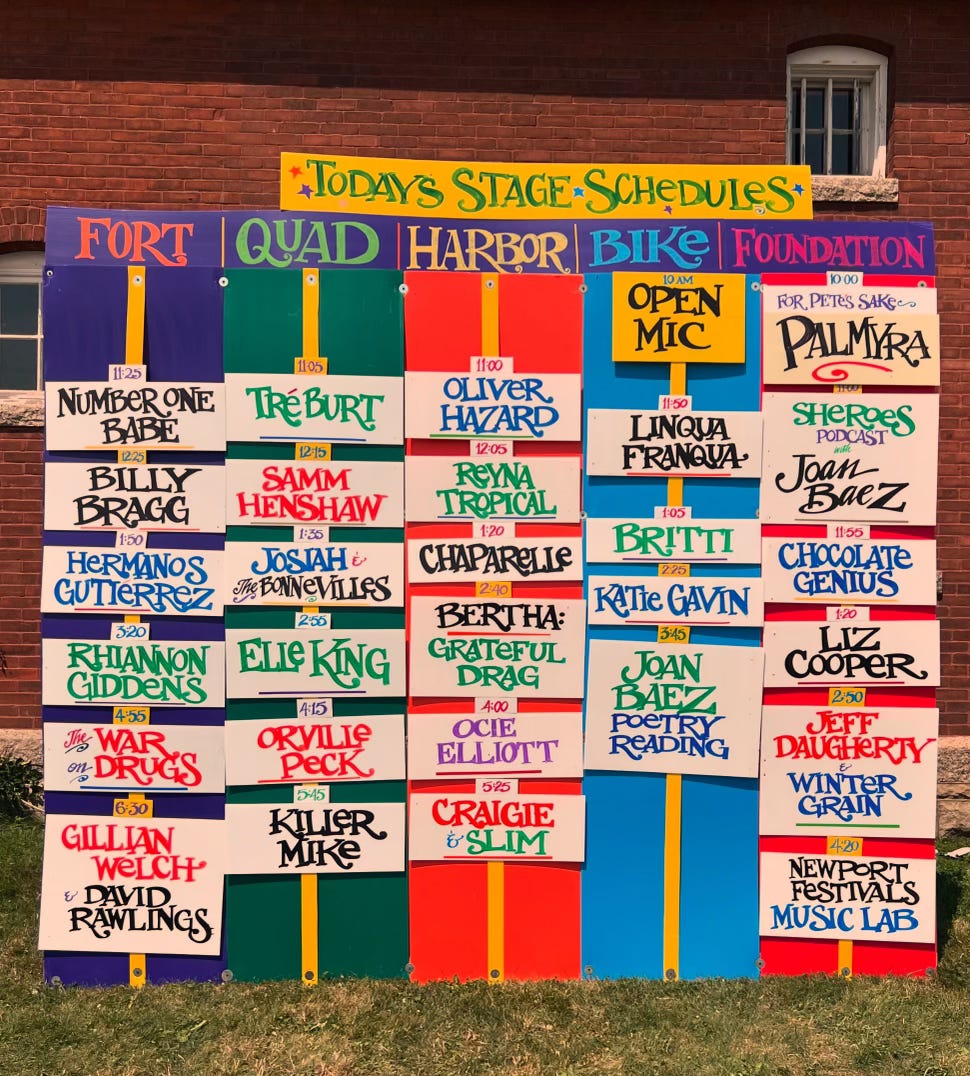 TODAY'S STAGE SCHEDULES
FORT
11:25
NUMBER ONE
BABE
12:25
BILLY
BRAGG
1:50
HERMANOS
GUTIÉRREZ
3:20
RHIANNON
GIDDENS
4:55
The WAR
on DRUGS
6:30
GILLIAN
WELCH
& DAVID
RAWLINGS
QUAD
11:05
TRÉ BURT
12:15
SAMM
HENSHAW
1:35
JOSIAH &
The BONNEVILLES
2:55
ELLE KING
4:15
ORVILLE
PECK
5:45
KILLER
MIKE
HARBOR
11:00
OLIVER
HAZARD
12:05
REYNA
TROPICAL
1:20
CHAPARELLE
2:40
BERTHA:
GRATEFUL
DRAG
4:00
OCIE
ELLIOTT
5:25
CRAIGIE
& SLIM
BIKE
10 AM
OPEN
MIC
11:50
LINQUA
FRANQUA
1:05
BRITTI
2:25
KATIE GAVIN
3:45
JOAN
BAEZ
POETRY
READING
FOUNDATION
10:00
FOR PETE'S SAKE
PALMYRA
11:00
SHEROES
PODCAST
with
Joan
Baez
11:55
CHOCOLATE
GENIUS
1:20
LIZ
COOPER
2:50
JEFF
DAUGHERTY
&
WINTER
GRAIN
4:20
NEWPORT
FESTIVALS
MUSIC LAB